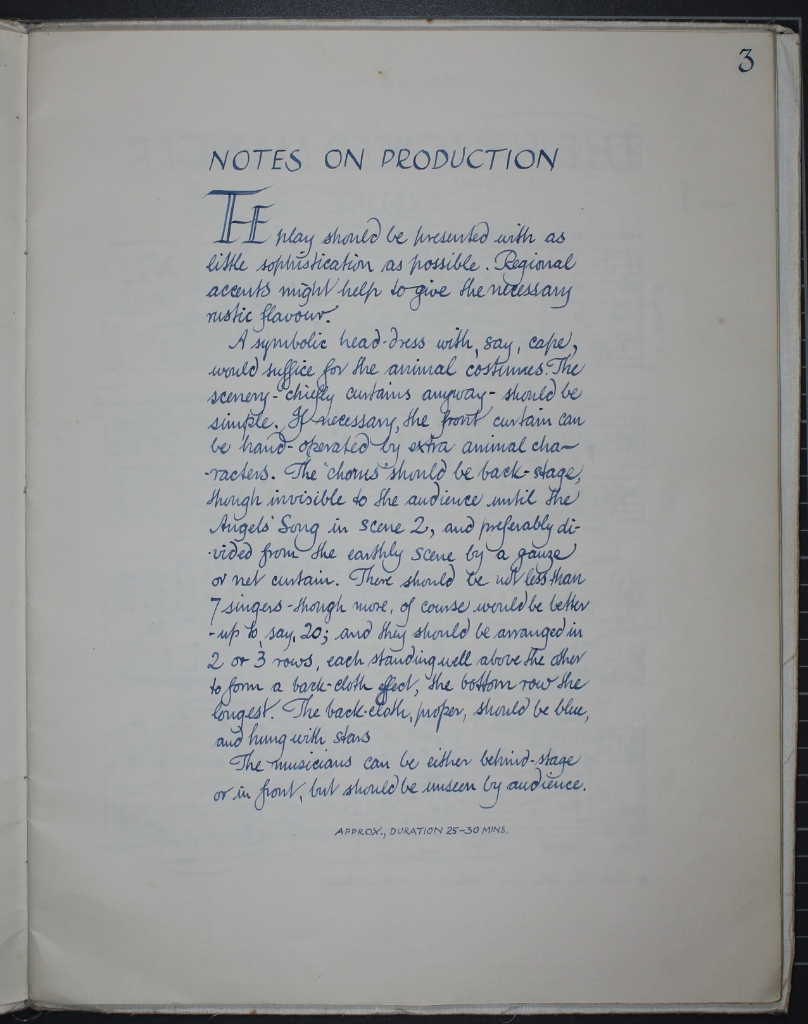 3
NOTES ON PRODUCTION
THE play should be presented with as
little sophistication as possible. Regional
accents might help to give the necessary
rustic flavour.
A symbolic head-dress with, say, cape,
would suffice for the animal costumes. The
scenery - chiefly curtains anyway - should be
simple. If necessary, the front curtain can
be hand-operated by extra animal cha-
-racters. The "chorus" should be back-stage,
though invisible to the audience until the
Angels' Song in scene 2, and preferably di-
-vided from the earthly scene by a gauze
or net curtain. There should be not less than
7 singers - though more, of course would be better
- up to, say, 20; and they should be arranged in
2 or 3 rows, each standing well above the other
to form a back-cloth effect, the bottom row the
longest. The back-cloth, proper, should be blue,
and hung with stars
The musicians can be either behind-stage
or in front, but should be unseen by audience.
APPROX., DURATION 25-30 MINS.